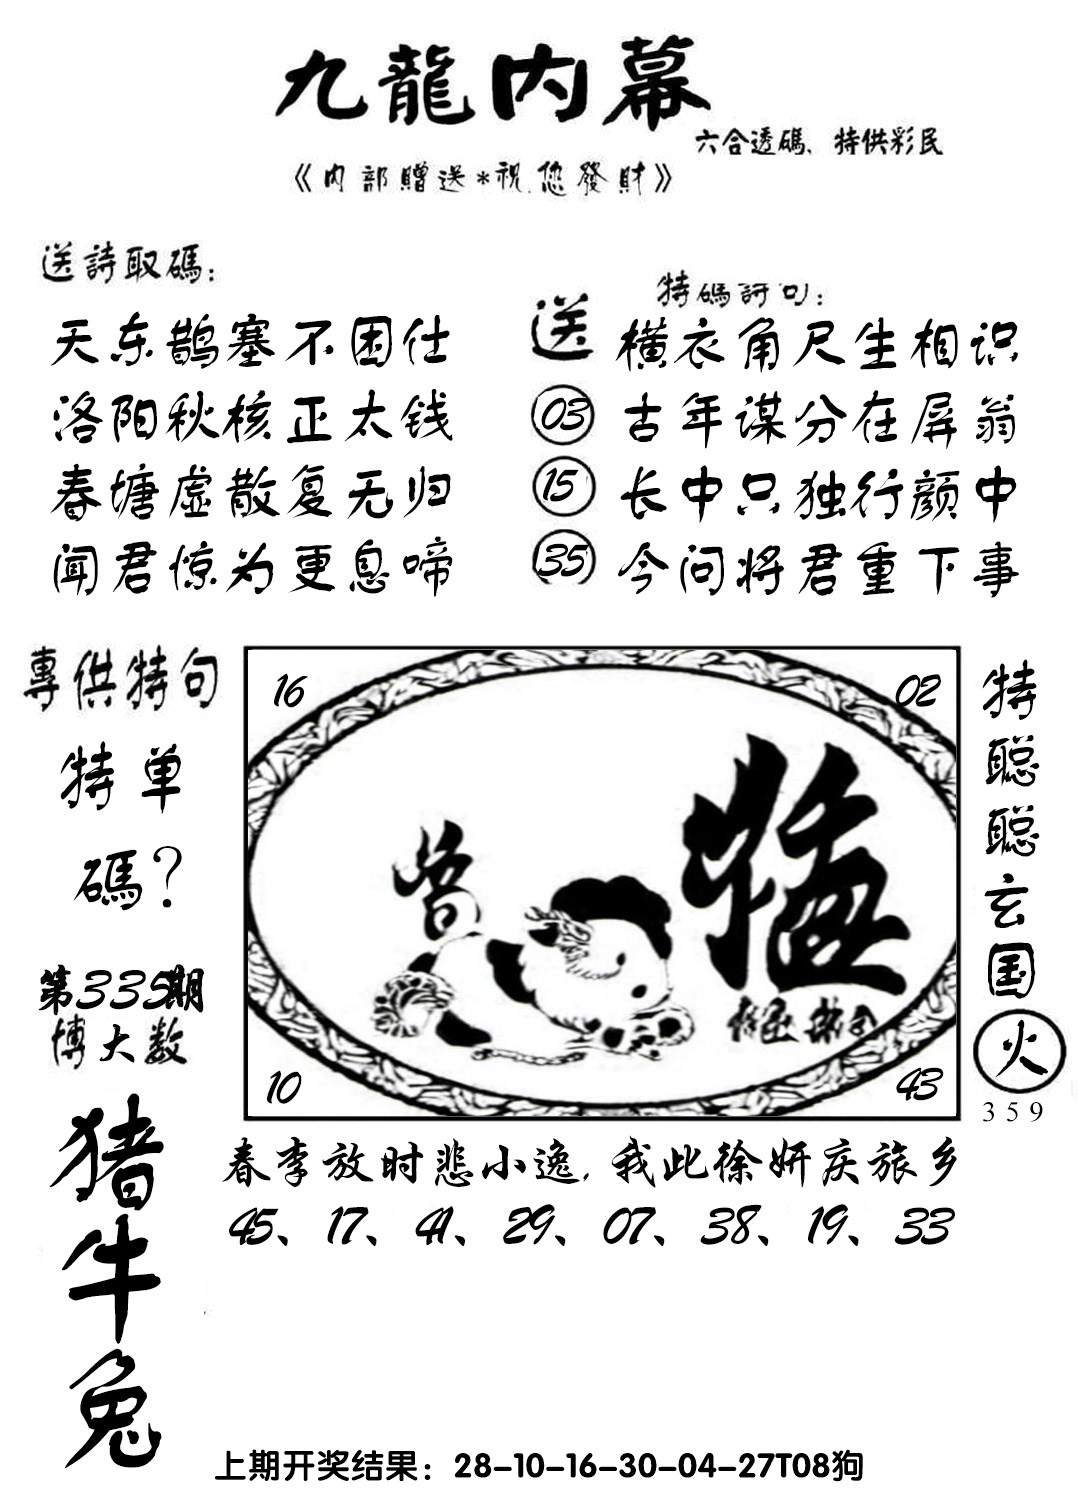 九龍内幕
六合透碼、特供彩民
《内部贈送*祝您發財》
送詩取碼：
天东鹊塞不困仕
洛阳秋核正太钱
春塘虚散复无归
闻君惊为更息啼
送
03
15
35
特碼詩句：
横衣角尺生相识
古年谋分在屏翁
长中只独行颜中
今问将君重下事
專供特句
特单
碼？
第335期
博大数
猪
牛
兔
16
02
10
43
特
聪
聪
玄
国
火
359
春李放时悲小逸，我此徐妍庆旅乡
45、17、41、29、07、38、19、33
上期开奖结果：28-10-16-30-04-27T08狗